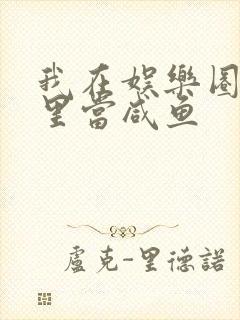 我在娱樂圈
里當咸鱼
盧克-里德諾